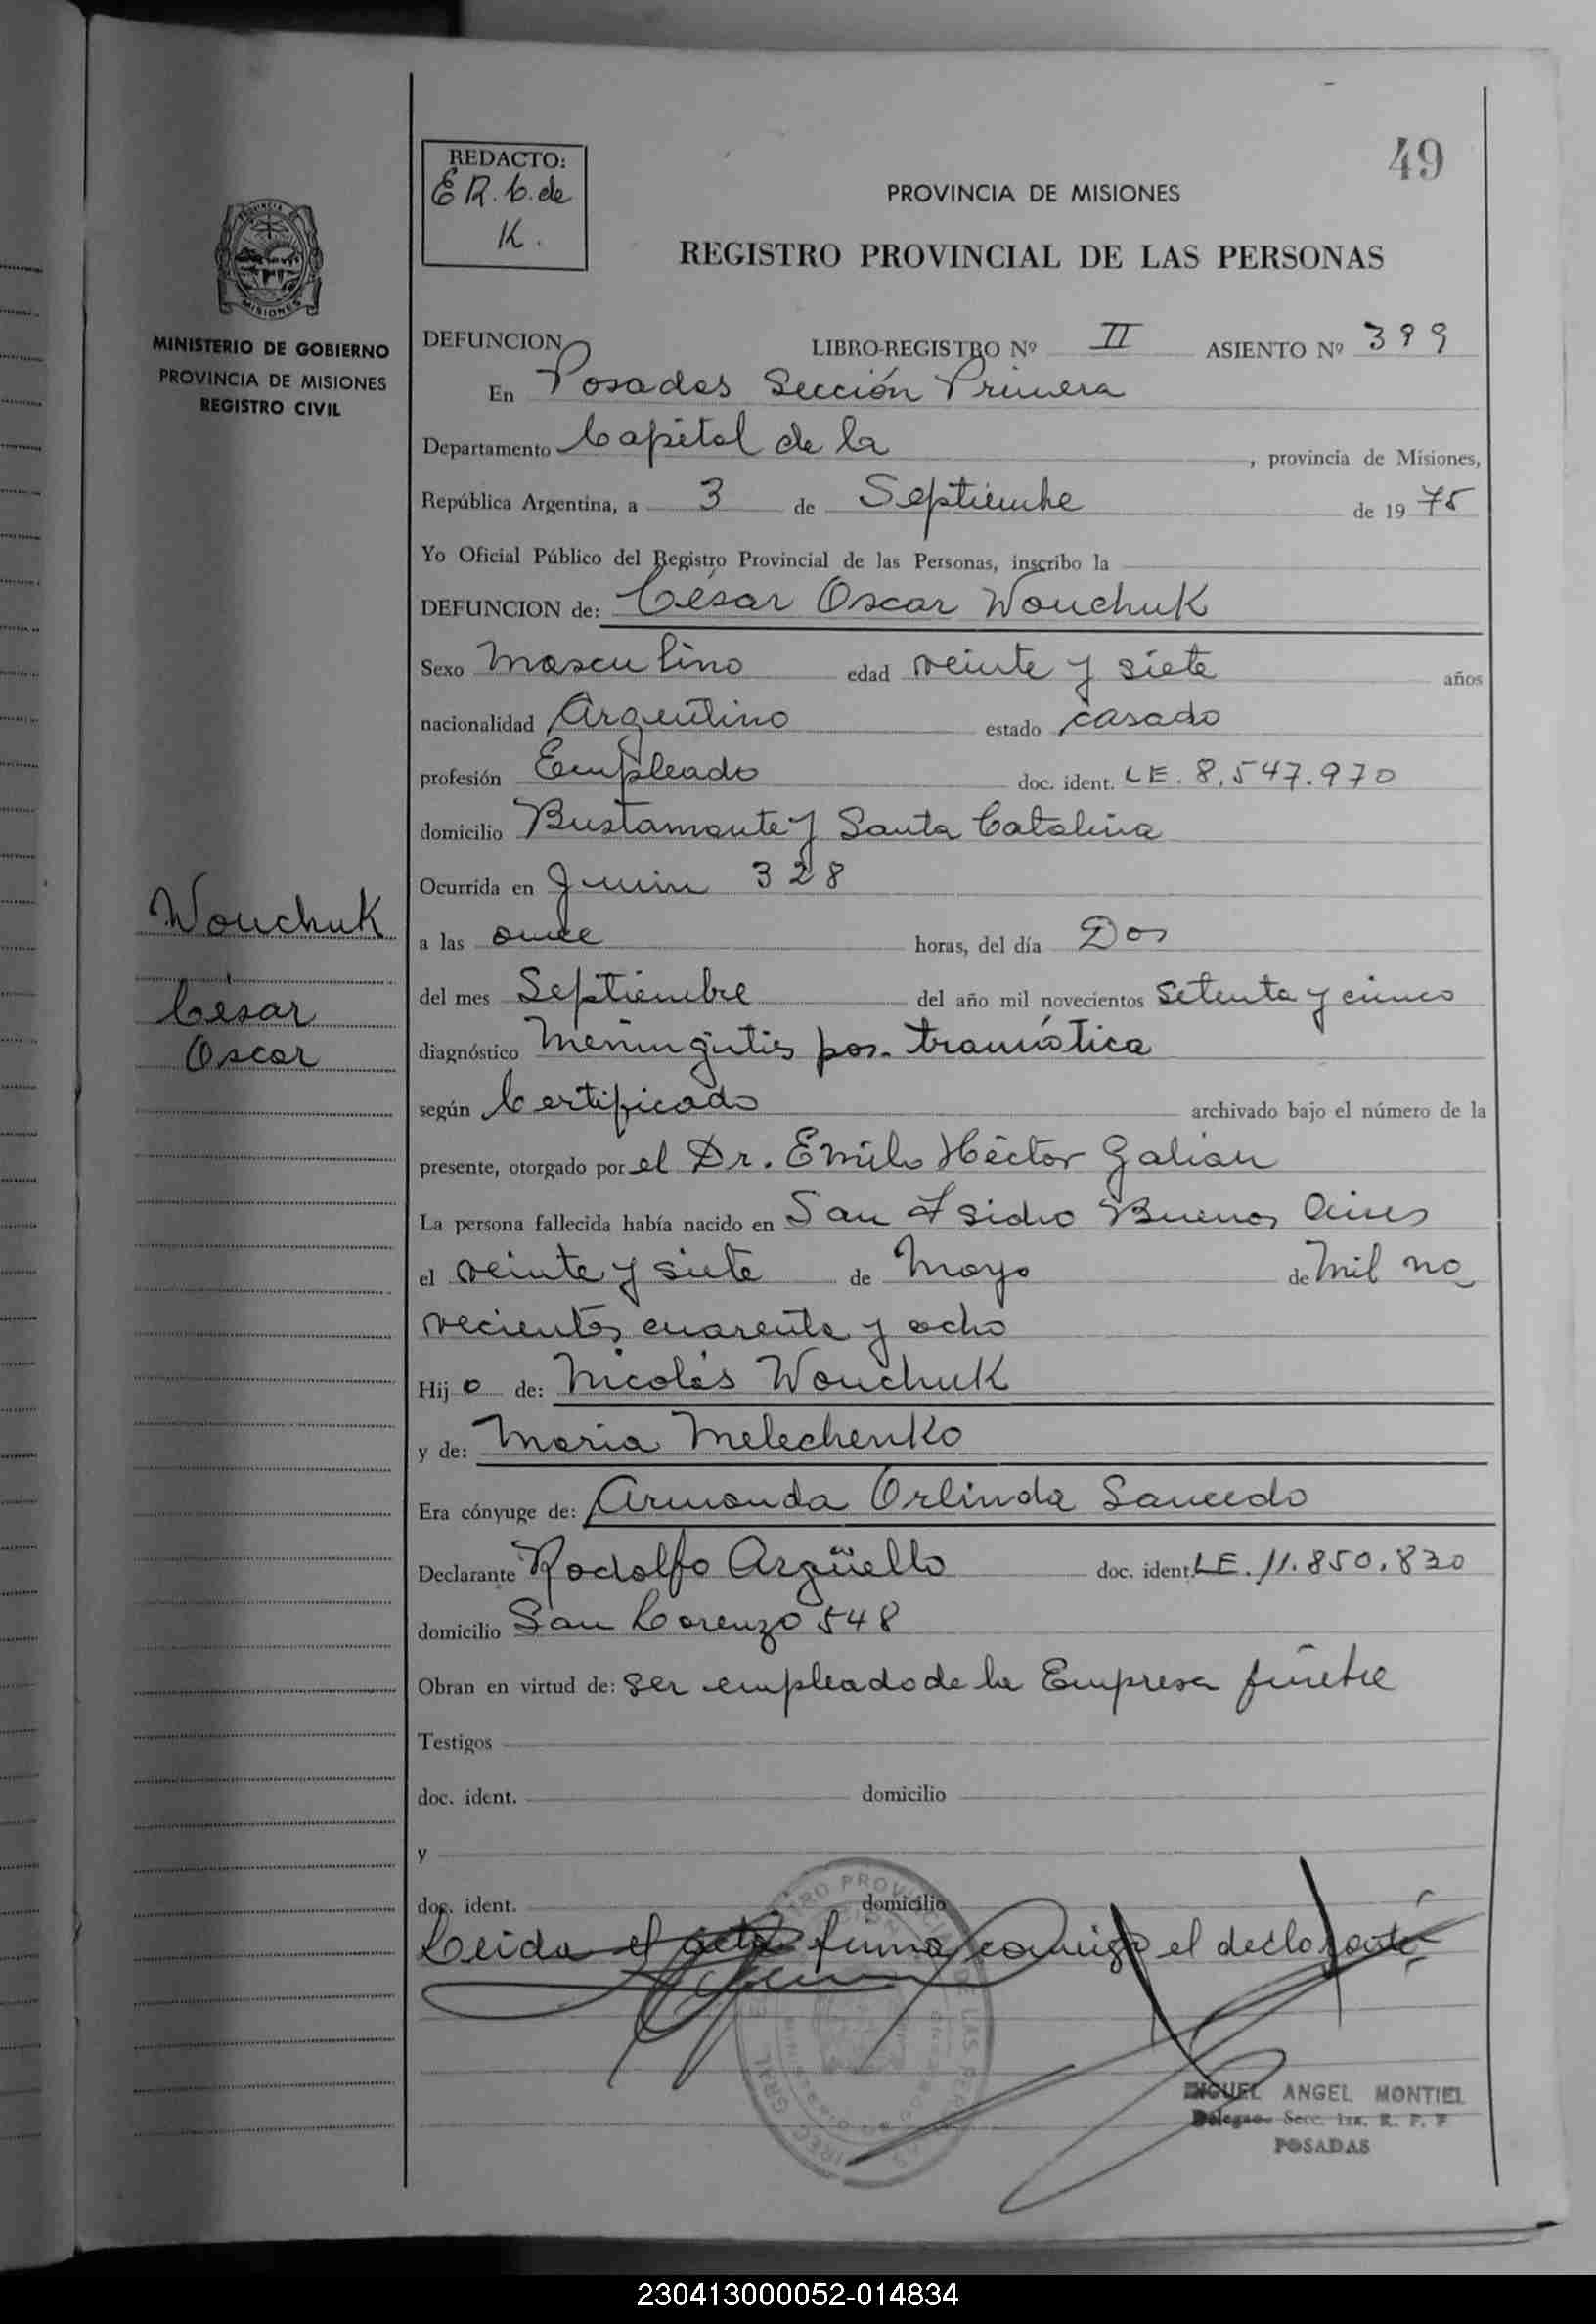 49
REDACTO:
E R. C. de
K.
PROVINCIA DE MISIONES
REGISTRO PROVINCIAL DE LAS PERSONAS
PROVINCIA DE
MISIONES
MINISTERIO DE GOBIERNO
PROVINCIA DE MISIONES
REGISTRO CIVIL
DEFUNCION
LIBRO-REGISTRO Nº II ASIENTO Nº 399
En Posadas Sección Primera
Departamento Capital de la , provincia de Misiones,
República Argentina, a 3 de Septiembre de 19 75
Yo Oficial Público del Registro Provincial de las Personas, inscribo la
DEFUNCION de: César Oscar Wouchuk
Sexo Masculino edad veinte y siete años
nacionalidad Argentino estado casado
profesión Empleado doc. ident. LE. 8.547.970
domicilio Bustamante y Santa Catalina
Ocurrida en Junin 328
Wouchuk
César
Oscar
a las once horas, del día Dos
del mes Septiembre del año mil novecientos Setenta y cinco
diagnóstico Meningitis pos. traumática
según Certificado archivado bajo el número de la
presente, otorgado por el Dr. Emilo Héctor Galian
La persona fallecida había nacido en San Isidro Buenos Aires
el veinte y siete de Mayo de Mil no
vecientos cuarenta y ocho
Hij o de: Nicolás Wouchuk
y de: Maria Melechenko
Era cónyuge de: Armanda Orlinda Saucedo
Declarante Rodolfo Argüello doc. ident. LE. 11.850.820
domicilio San Lorenzo 548
Obran en virtud de: ser empleado de la Empresa fúnebre
Testigos
doc. ident. domicilio
y
doc. ident. domicilio
Leida el acta firma conmigo el declarante
MIGUEL ANGEL MONTIEL
Delegado Secc. 1ra. R. P. P
POSADAS
230413000052-014834